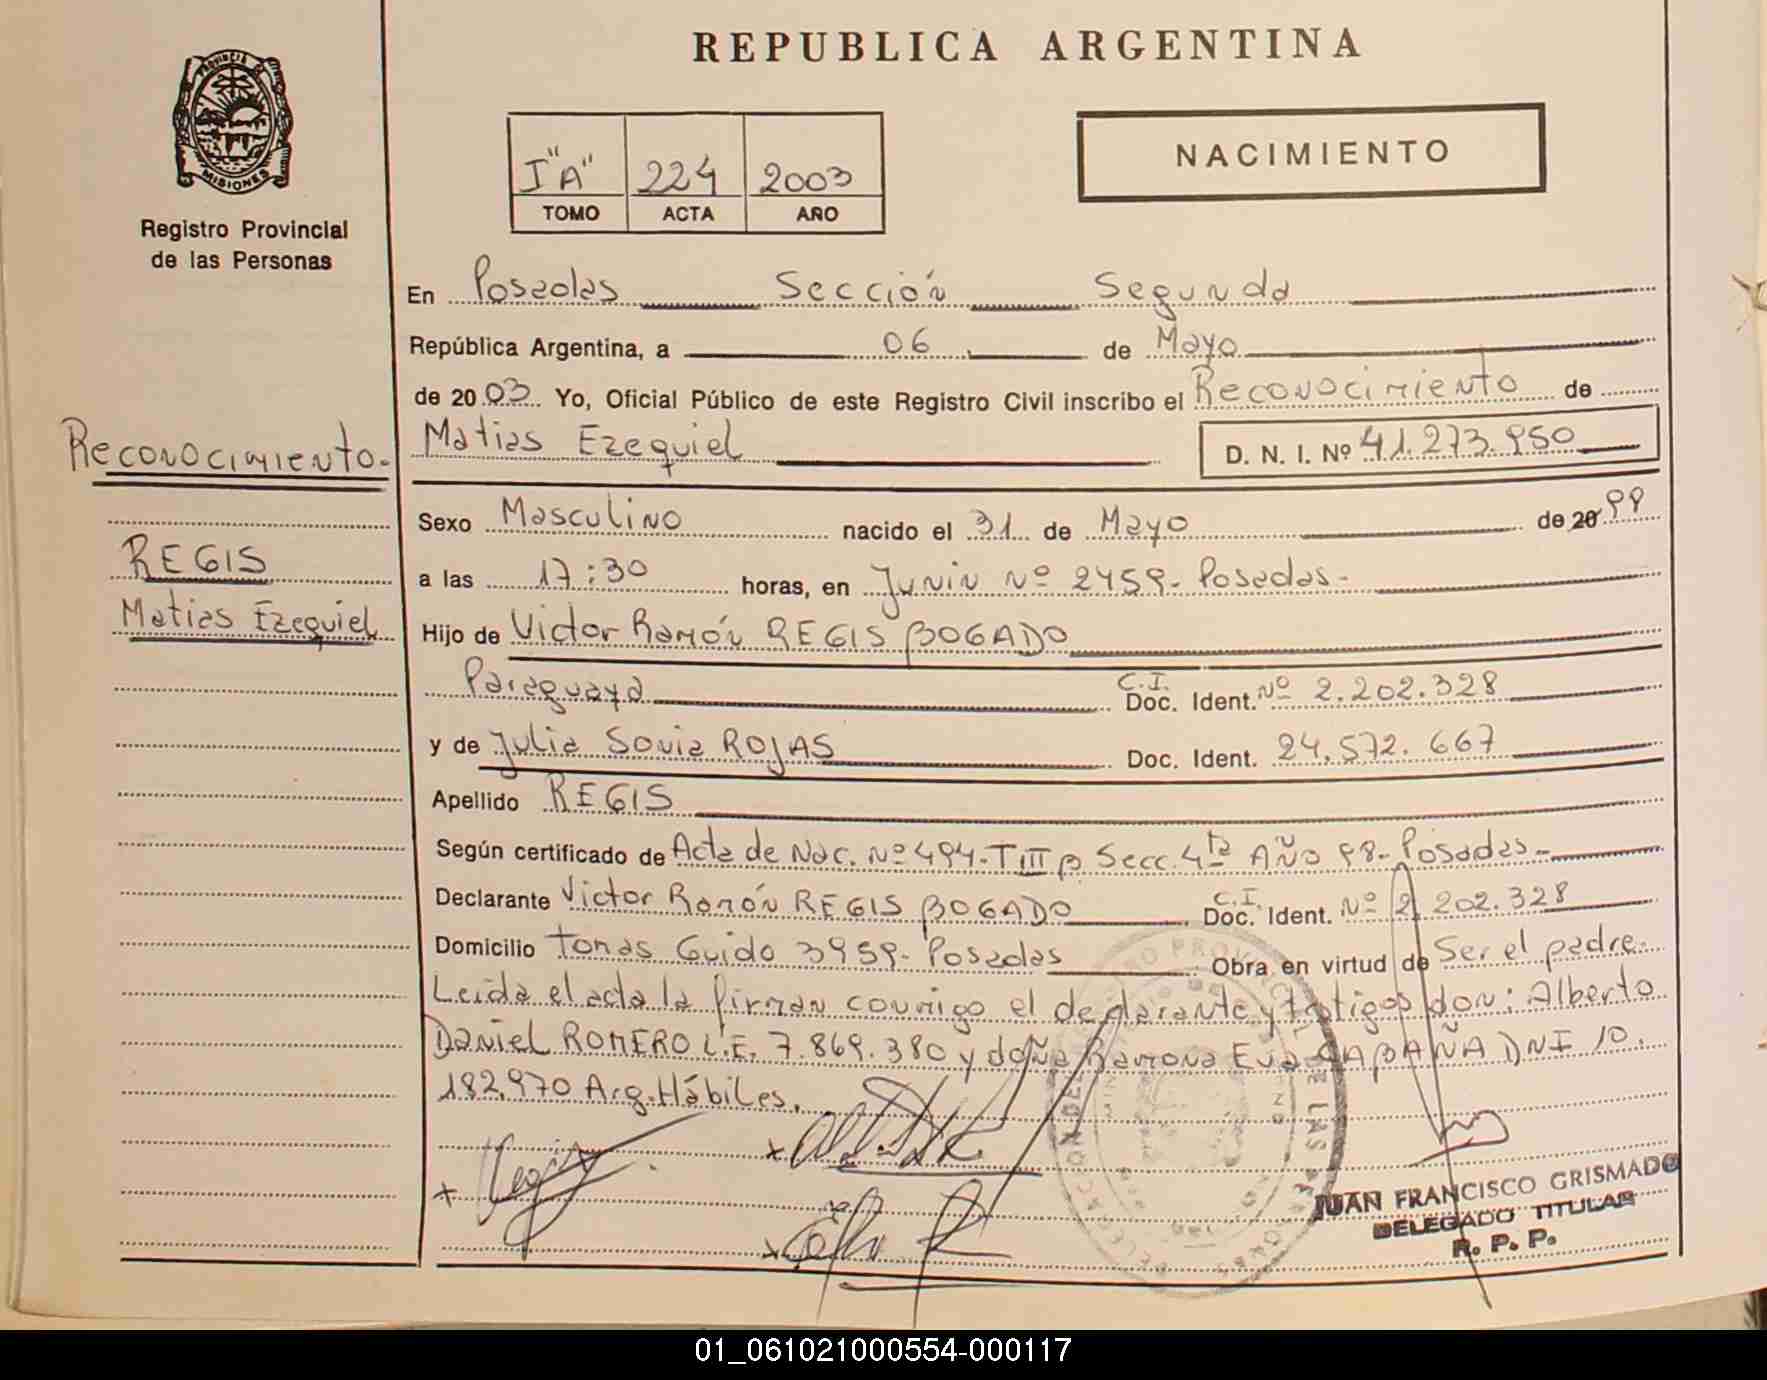 REPUBLICA ARGENTINA
PROVINCIA DE
MISIONES
Registro Provincial
de las Personas
I "A" 224 2003
TOMO ACTA AÑO
NACIMIENTO
En Posadas Sección Segunda
República Argentina, a 06 de Mayo
de 2003 Yo, Oficial Público de este Registro Civil inscribo el Reconocimiento de
Reconocimiento.
Matias Ezequiel D. N. I. Nº 41.273.950
Sexo Masculino nacido el 31 de Mayo de 20 98
REGIS
Matias Ezequiel
a las 17:30 horas, en Junin Nº 2459. Posadas.
Hijo de Victor Ramón REGIS BOGADO
Paraguaya C.I. Doc. Ident. Nº 2.202.328
y de Julia Sonia ROJAS Doc. Ident. 24.572.667
Apellido REGIS
Según certificado de Acta de Nac. Nº 494-T III B Secc. 4ta AÑO 98- Posadas-
Declarante Victor Ramón REGIS BOGADO C.I. Doc. Ident. Nº 2.202.328
Domicilio Tomas Guido 3959- Posadas Obra en virtud de Ser el padre.
Leida el acta la firman conmigo el declarante y testigos don: Alberto
Daniel ROMERO L.E. 7.869.380 y doña Ramona Eva CABAÑA DNI 10.
182.970 Arg. Hábiles.
JUAN FRANCISCO GRISMADO
DELEGADO TITULAR
R. P. P.
01_061021000554-000117